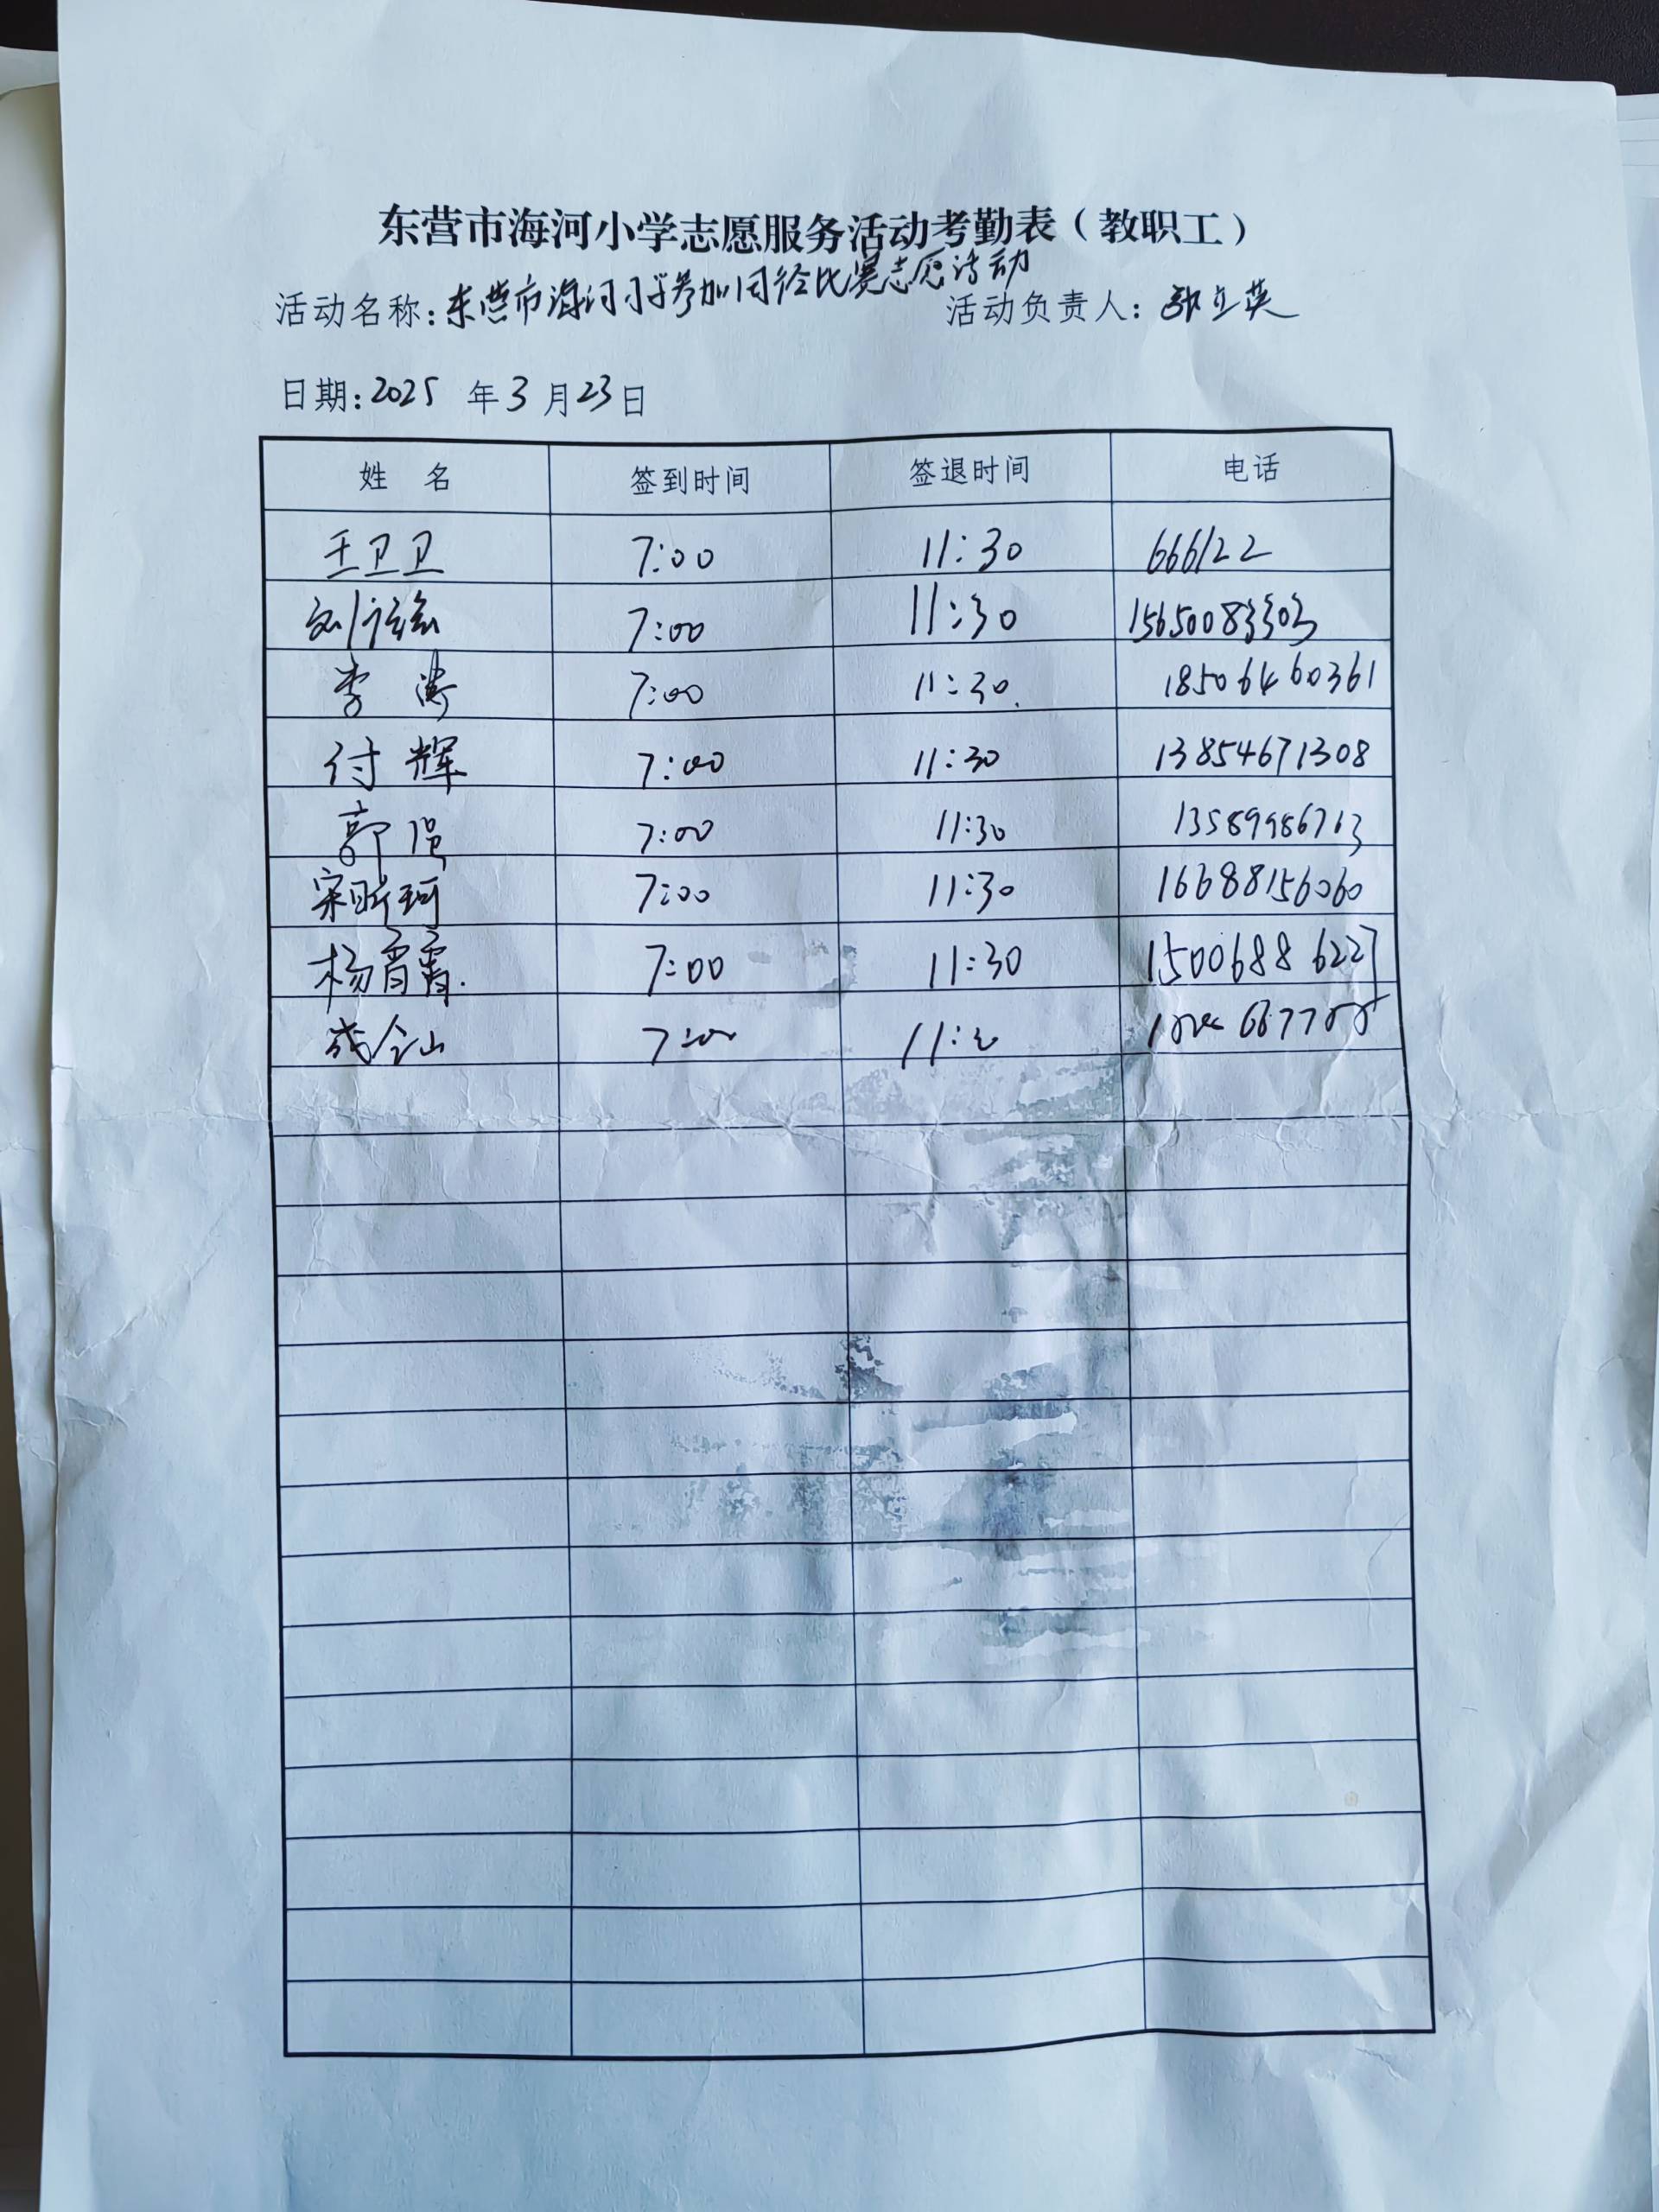 东营市海河小学志愿服务活动考勤表（教职工）
活动名称：东营市海河小学参加田径比赛志愿活动 活动负责人：郭立英
日期：2025 年 3 月 23 日
姓 名 签到时间 签退时间 电话
王卫卫 7:00 11:30 666122
刘 7:00 11:30 15650083303
李涛 7:00 11:30. 18506460361
付辉 7:00 11:30 13854671308
郭强 7:00 11:30 13589986713
宋昕珂 7:00 11:30 16688156060
杨霄霄. 7:00 11:30 15006886227
成金山 7:00